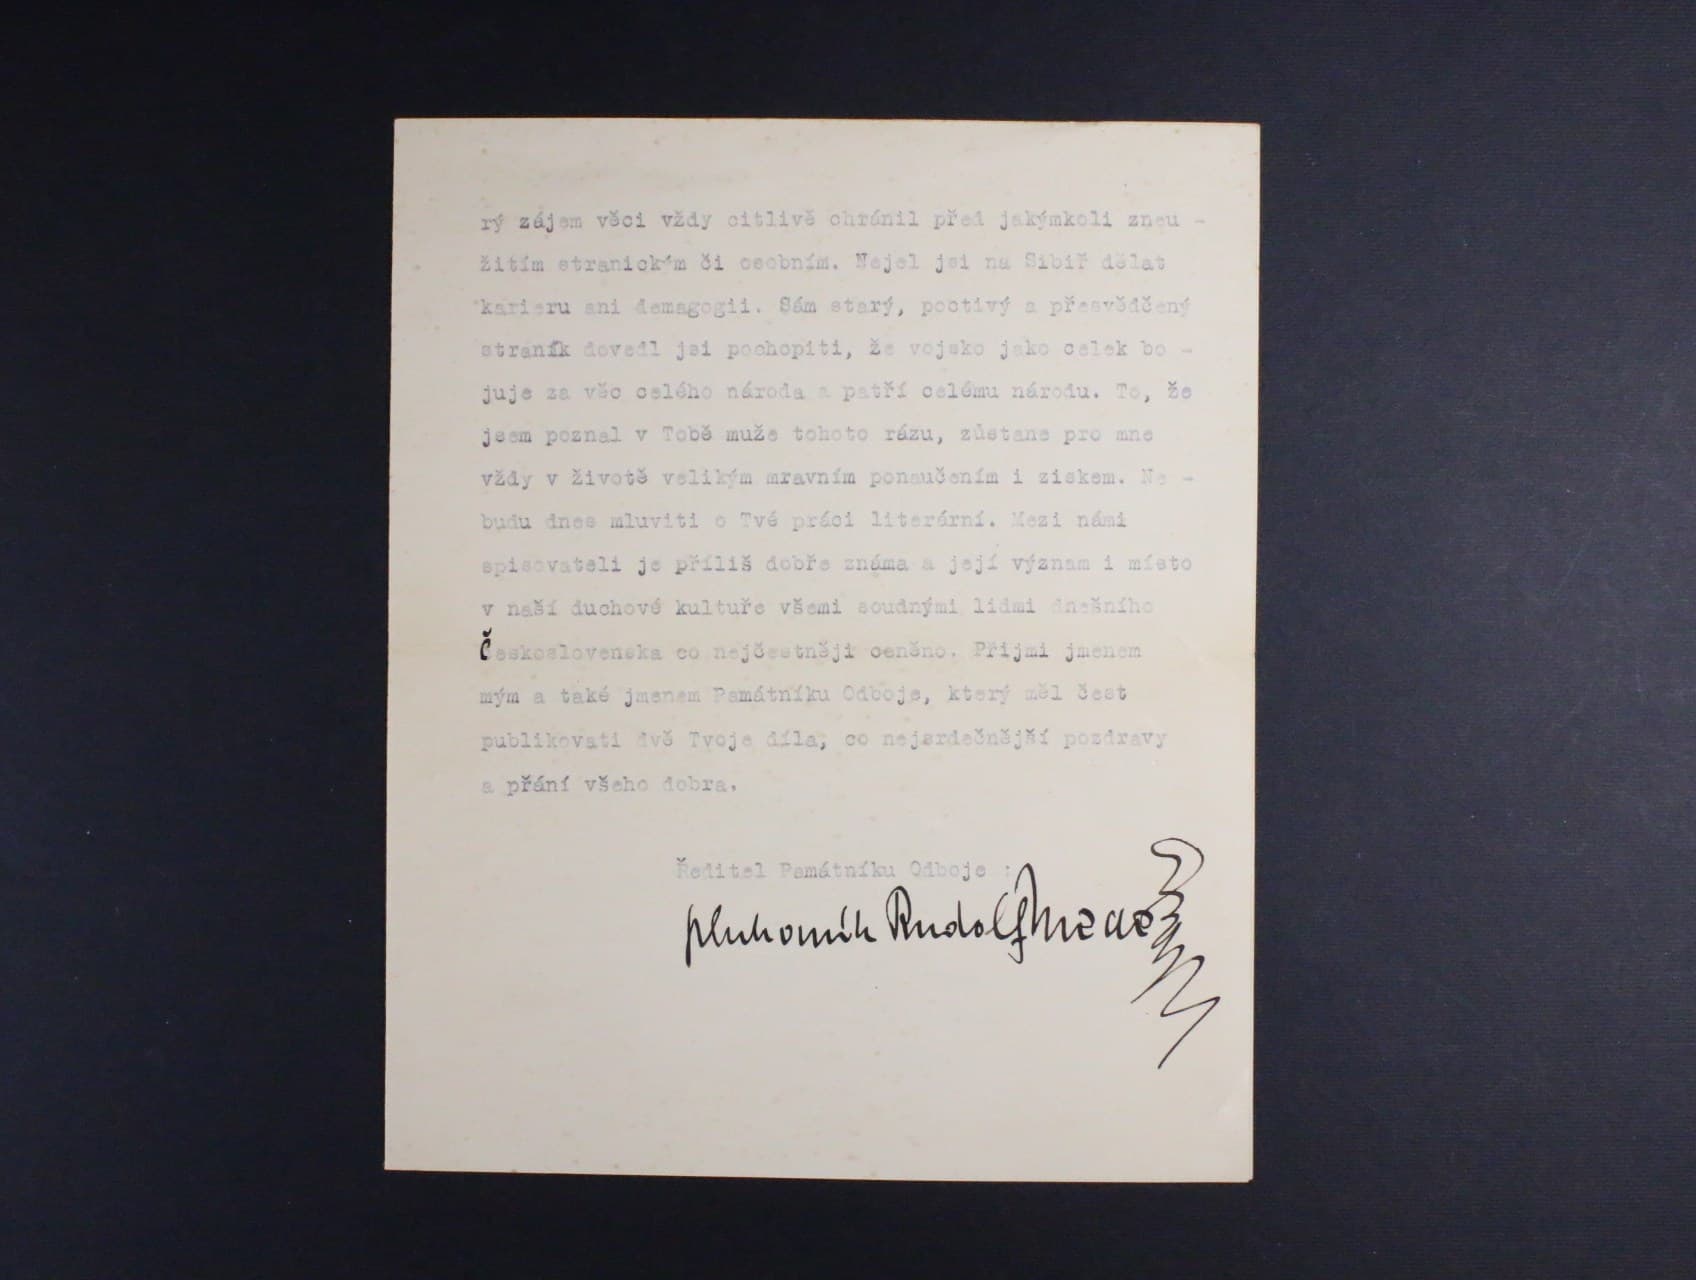 rý zájem věci vždy citlivě chránil před jakýmkoli zneu -
žitím stranickým či osobním. Nejel jsi na Sibiř dělat
karieru ani demagogii. Sám starý, poctivý a přesvědčený
straník dovedl jsi pochopiti, že vojsko jako celek bo -
juje za věc celého národa a patří celému národu. To, že
jsem poznal v Tobě muže tohoto rázu, zůstane pro mne
vždy v životě velikým mravním ponaučením i ziskem. Ne -
budu dnes mluviti o Tvé práci literární. Mezi námi
spisovateli je příliš dobře známa a její význam i místo
v naší duchové kultuře všemi soudnými lidmi dnešního
Československa co nejčestněji ceněno. Přijmi jmenem
mým a také jmenem Památníku Odboje, který měl čest
publikovati dvě Tvoje díla, co nejsrdečnější pozdravy
a přání všeho dobra.
Ředitel Památníku Odboje :
plukovník Rudolf Medek